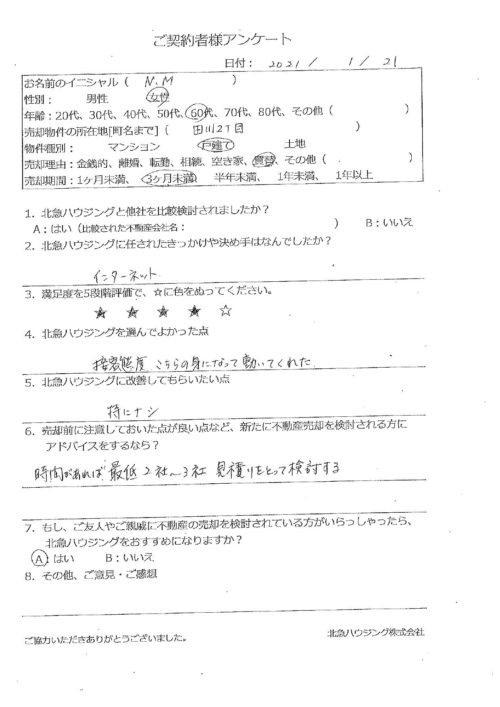 ご契約者様アンケート
日付： 2021 / 1 / 21
お名前のイニシャル（ N.M ）
性別： 男性 女性
年齢：20代、30代、40代、50代、60代、70代、80代、その他（ ）
売却物件の所在地[町名まで]（ 田川2丁目 ）
物件種別： マンション 戸建て 土地
売却理由：金銭的、離婚、転勤、相続、空き家、買替、その他（ ）
売却期間：1ヶ月未満、 3ヶ月未満 半年未満、 1年未満、 1年以上
1．北急ハウジングと他社を比較検討されましたか？
A：はい（比較された不動産会社名： ） B：いいえ
2．北急ハウジングに任されたきっかけや決め手はなんでしたか？
インターネット
3．満足度を5段階評価で、☆に色をぬってください。
★ ★ ★ ★ ☆
4．北急ハウジングを選んでよかった点
接客態度 こちらの身になって動いてくれた
5．北急ハウジングに改善してもらいたい点
特にナシ
6．売却前に注意しておいた点が良い点など、新たに不動産売却を検討される方に
アドバイスをするなら？
時間があれば 最低2社〜3社 見積りをとって検討する
7．もし、ご友人やご親戚に不動産の売却を検討されている方がいらっしゃったら、
北急ハウジングをおすすめになりますか？
A：はい B：いいえ
8．その他、ご意見・ご感想
ご協力いただきありがとうございました。 北急ハウジング株式会社